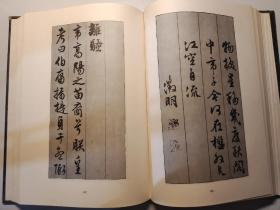 物換星移幾度秋閣
中帝子今何在檻外長
江空自流
徵明
離騷
帝高陽之苗裔兮朕皇
考曰伯庸攝提貞于孟陬